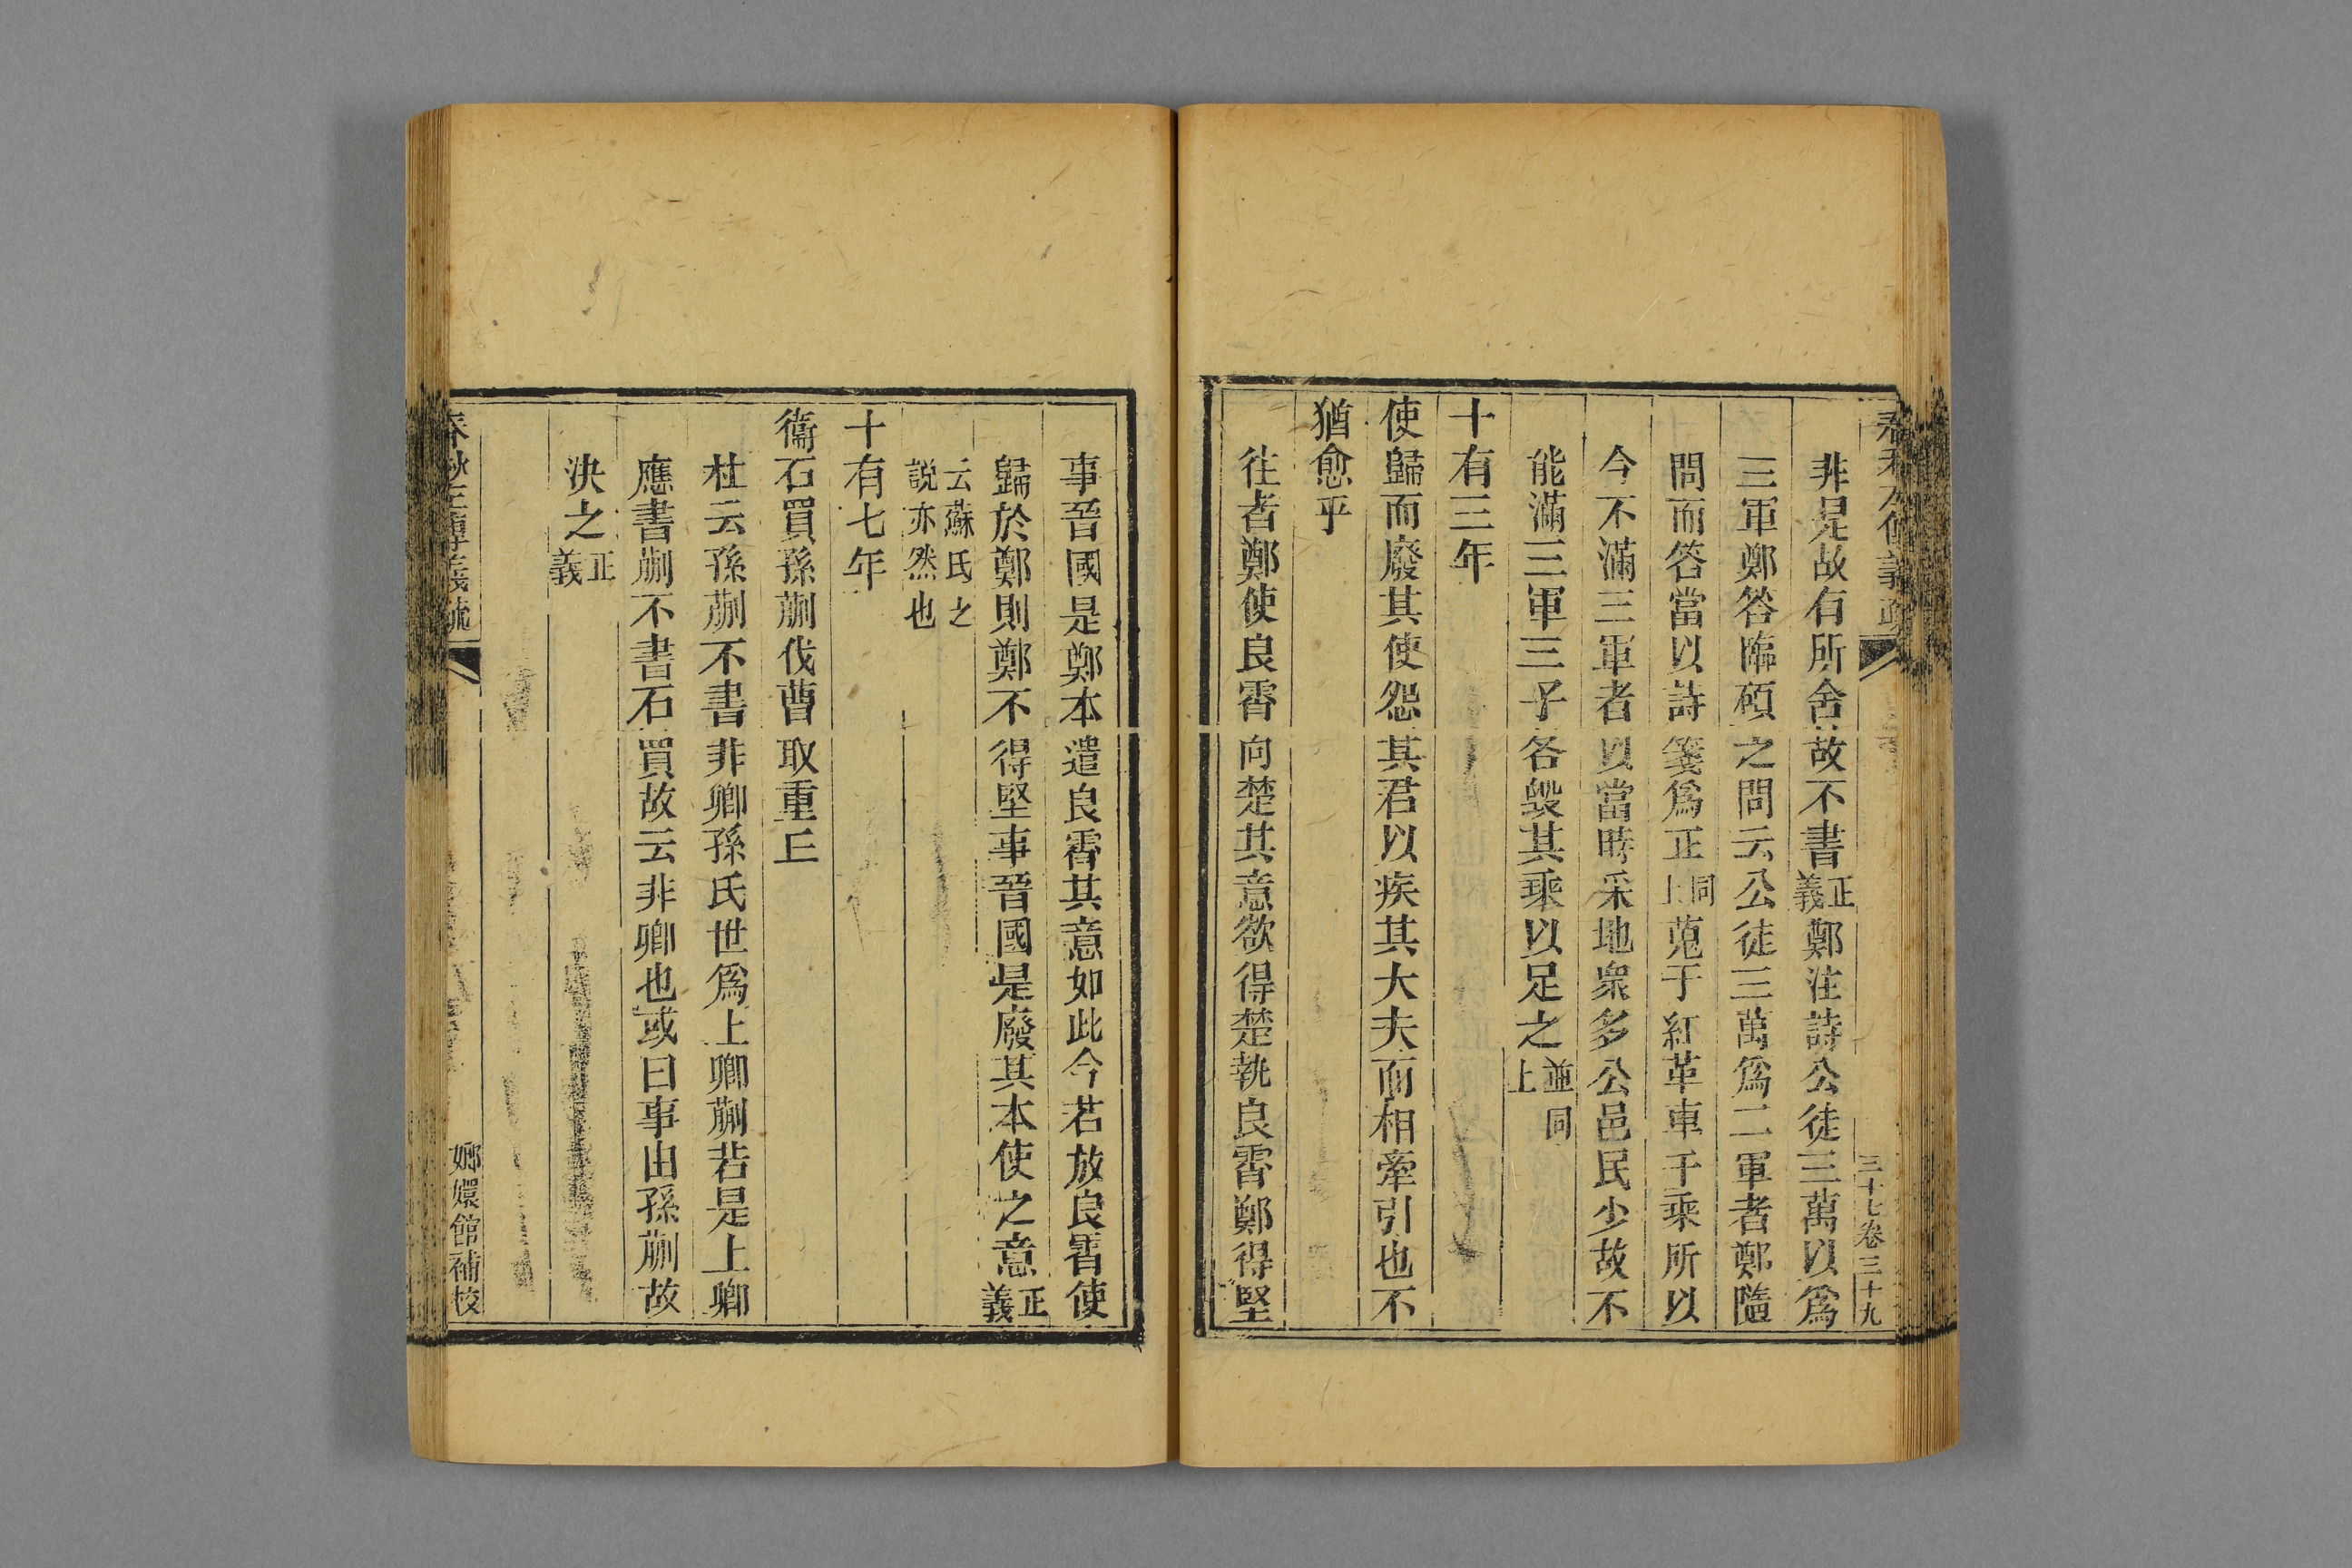 三十七卷三十九
非是故有所舍故不書正義鄭注詩公徒三萬以爲
三軍鄭答臨碩之問云公徒三萬爲二軍者鄭隨
問而答當以詩箋爲正同上蒐于紅革車千乘所以
今不滿三軍者以當時采地衆多公邑民少故不
能滿三軍三子各毀其乘以足之並同上
十有三年
使歸而廢其使怨其君以疾其大夫而相牽引也不
猶愈乎
往者鄭使良霄向楚其意欲得楚執良霄鄭得堅
事晉國是鄭本遣良霄其意如此今若放良霄使
歸於鄭則鄭不得堅事晉國是廢其本使之意正義
云蘇氏之
說亦然也
十有七年
衞石買孫蒯伐曹取重丘
杜云孫蒯不書非卿孫氏世爲上卿蒯若是上卿
應書蒯不書石買故云非卿也或曰事由孫蒯故
決之正義
春秋左傳義疏
嫏嬛館補校